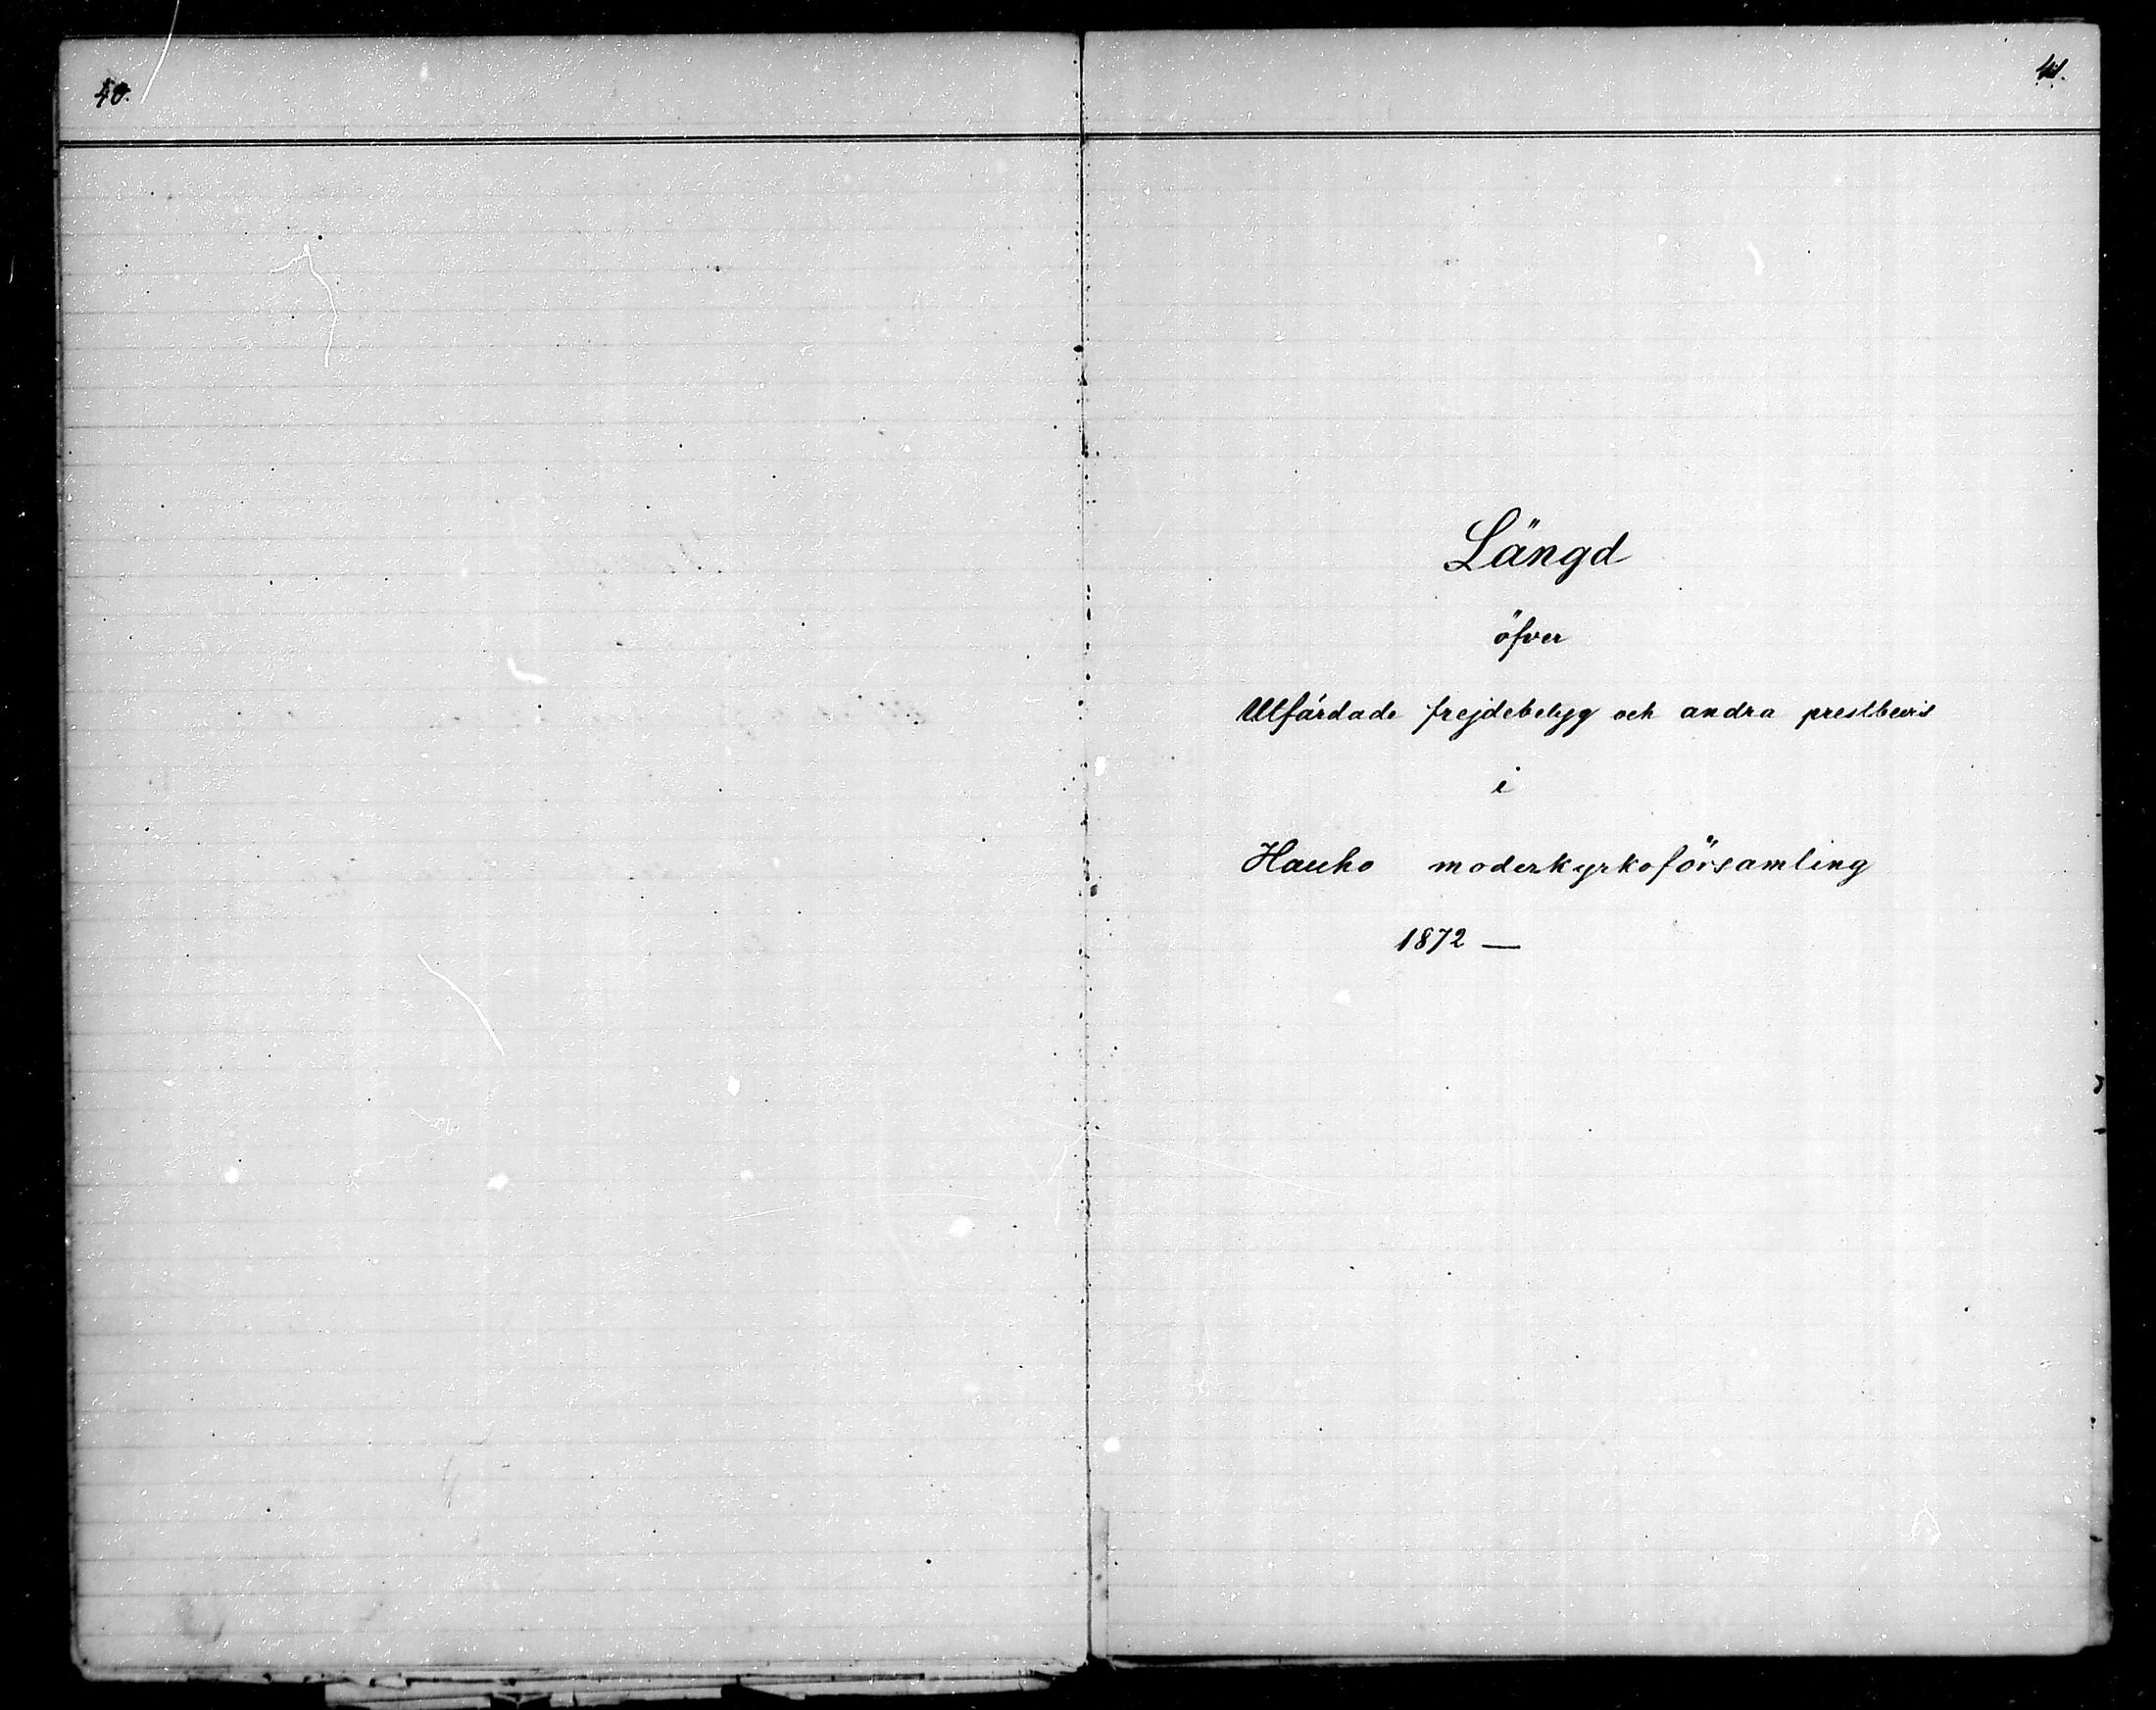 40.
41.
Längd
öfver
Utfärdade frejdebetyg och andra prestbevis
i
Hauho moderkyrkoförsamling
1872 —